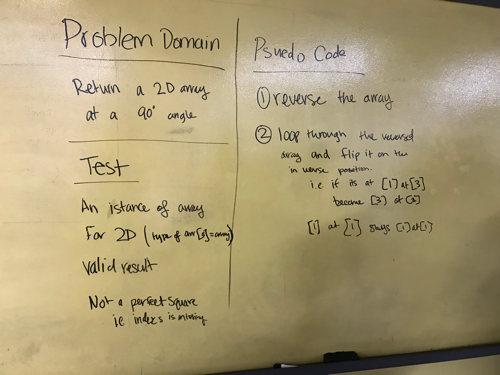 Problem Domain
Return a 2D array
at a 90° angle
Test
An istance of array
For 2D (type of arr[0]=array)
Valid result
Not a perfect square
ie indexs is missing
Psuedo Code
① reverse the array
② loop through the reversed
array and flip it on the
in verse position.
i.e if its at [1] at [3]
become [3] at
[1] at [1] stays [1] at [1]